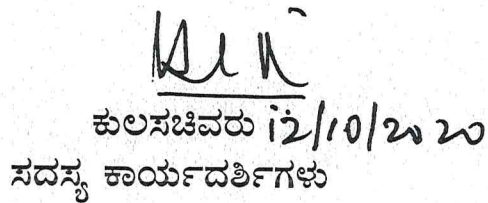 ಕುಲಸಚಿವರು 12/10/2020
ಸದಸ್ಯ ಕಾರ್ಯದರ್ಶಿಗಳು